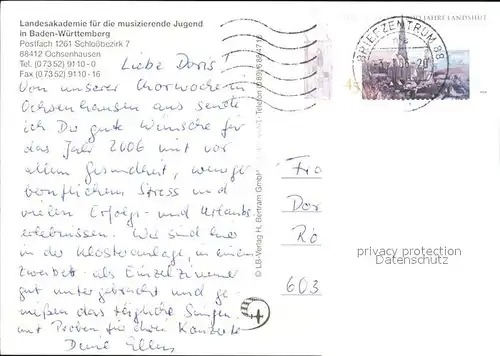 Landesakademie für die musizierende Jugend
in Baden-Württemberg
Postfach 1261 Schloßbezirk 7
88412 Ochsenhausen
Tel. (07352) 9110-0
Fax (07352) 9110-16
Liebe Doris!
Von unserer Chorwoche in
Ochsenhausen aus sende
ich Dir gute Wünsche für
das Jahr 2006 mit vor
allem Gesundheit, weniger
beruflichem Stress und
vielen Erfolgs- und Urlaubs-
erlebnissen. Wir sind hier
in der Klosteranlage, in einem
als Einzelzimmer
gut untergebracht und ge-
nießen das tägliche Singen
mit Proben für drei Konzerte
© LB-Verlag H. Bertram GmbH
Telefon
JAHRE LANDSHUT
BRIEFZENTRUM 88
45
Fra
Dor
Rö
603
privacy protection
Datenschutz